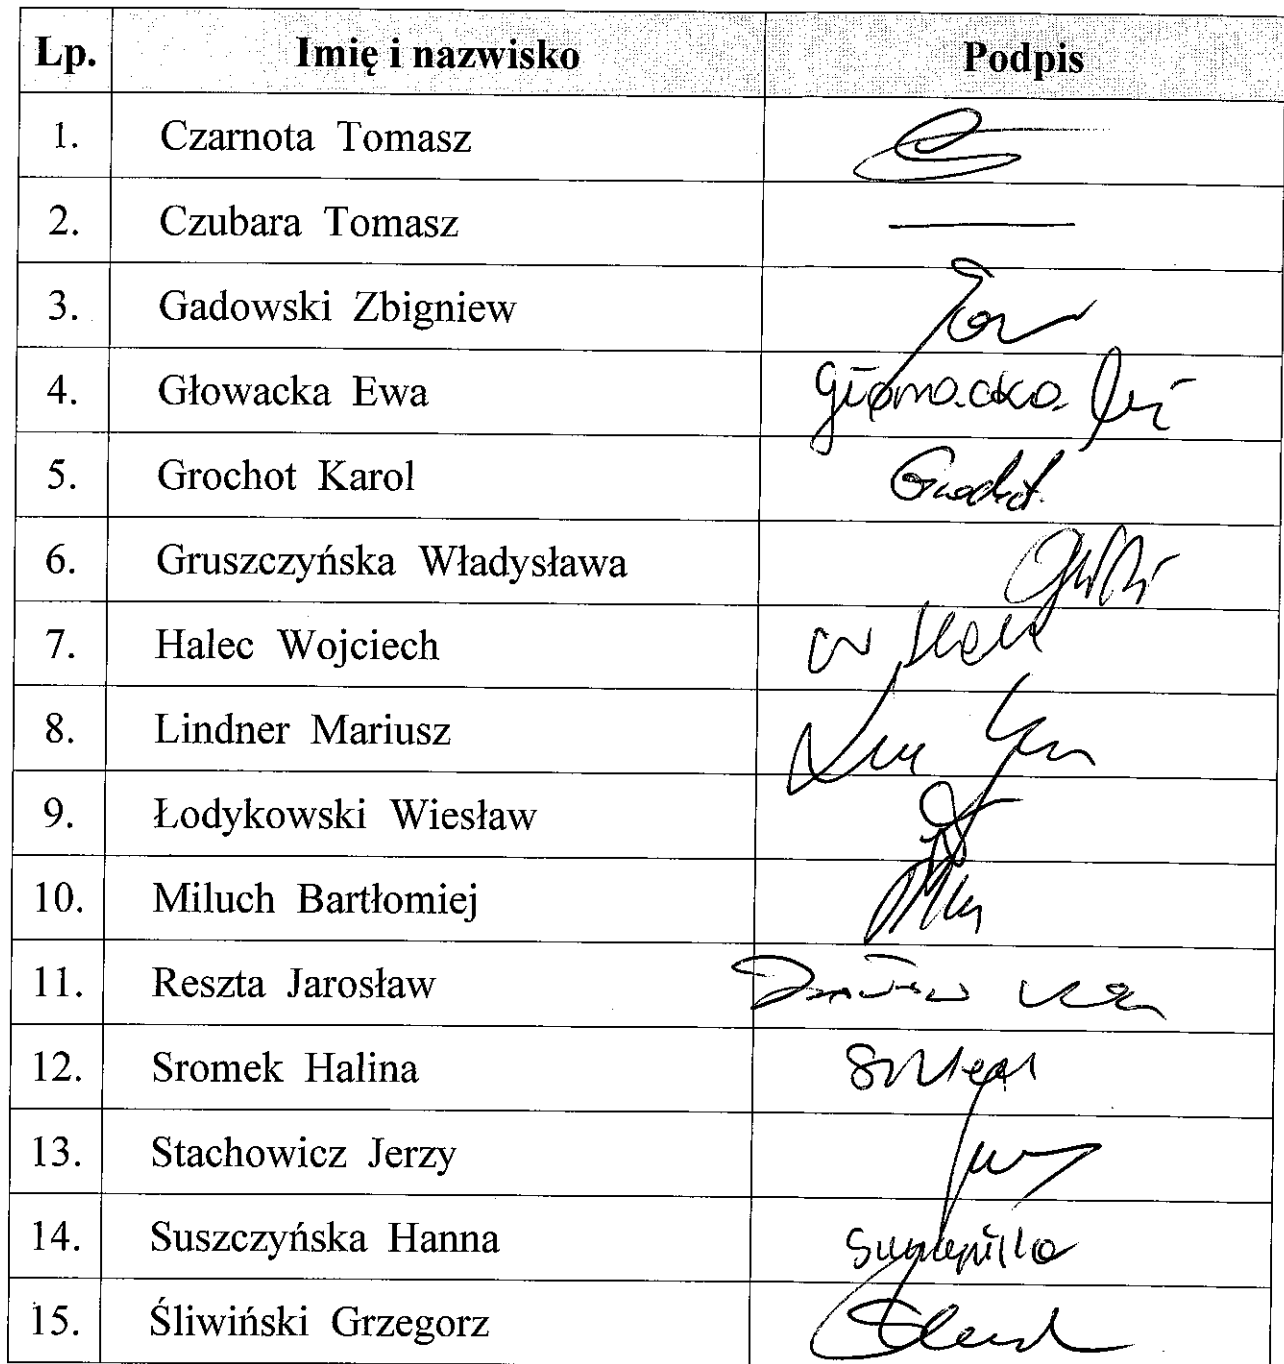 Lp. Imię i nazwisko Podpis
1. Czarnota Tomasz
2. Czubara Tomasz
3. Gadowski Zbigniew
4. Głowacka Ewa Głowacka
5. Grochot Karol Grochot
6. Gruszczyńska Władysława
7. Halec Wojciech W Halec
8. Lindner Mariusz
9. Łodykowski Wiesław
10. Miluch Bartłomiej
11. Reszta Jarosław
12. Sromek Halina
13. Stachowicz Jerzy
14. Suszczyńska Hanna
15. Śliwiński Grzegorz